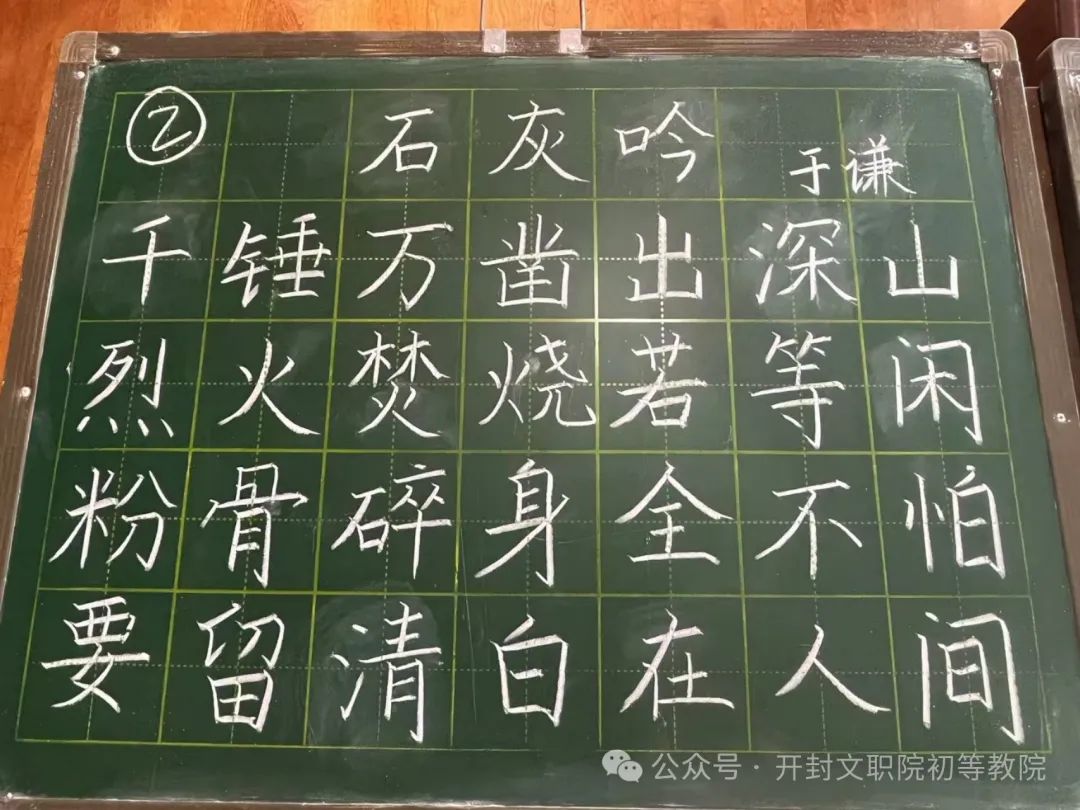 ②
石灰吟
于谦
千锤万凿出深山
烈火焚烧若等闲
粉骨碎身全不怕
要留清白在人间
公众号·开封文职院初等教院